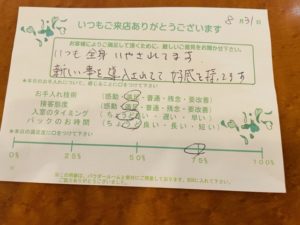 いつもご来店ありがとうございます
8/31
お客様によりご満足して頂くために、厳しいご意見をお聞かせ下さい。
いつも全身いやされてます
新しい事を導入されてて好感を持てます
お手入れ技術 (感動・満足・普通・残念・要改善)
接客態度 (感動・満足・普通・残念・要改善)
入室のタイミング (ちょうど良い・遅い・早い)
パックのお時間 (ちょうど良い・長い・短い)
0% 25% 50% 75% 100%